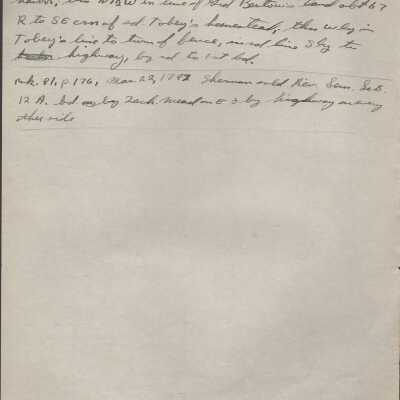 thence, thn N18W in line of sd Bertow's land abt 67
R to SE crn of sd. Tobey's homestead, thn wly in
Tobey's line to turn of fence, in sd line Sly to
highway, by sd to 1st bd.
nk. 81, p. 176, Mar. 22, 1792 Sherman sold Rev. Sam. S.B.
12 A. bd by Zach. Mead on E S by highway on every
other side